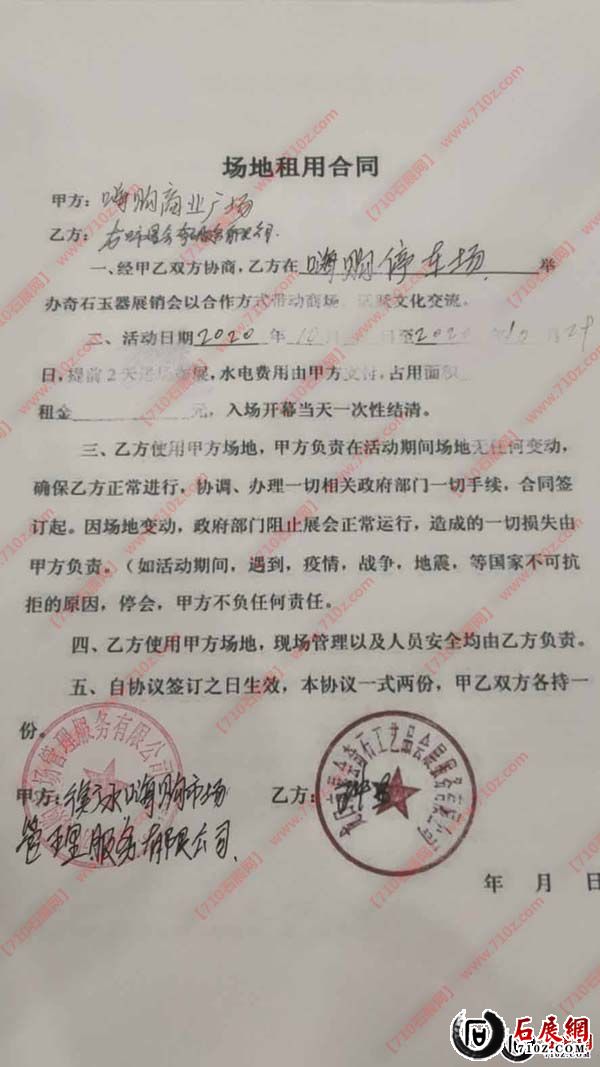 场地租用合同
甲方：嗨购商业广场
乙方：
一、经甲乙双方协商，乙方在 嗨购停车场 举
办奇石玉器展销会以合作方式带动商场，活跃文化交流。
二、活动日期2020年10月 至2020年10月29
日，提前2天进场布展，水电费用由甲方支付，占用面积
租金 元，入场开幕当天一次性结清。
三、乙方使用甲方场地，甲方负责在活动期间场地无任何变动，
确保乙方正常进行，协调、办理一切相关政府部门一切手续，合同签
订起。因场地变动，政府部门阻止展会正常运行，造成的一切损失由
甲方负责。（如活动期间，遇到，疫情，战争，地震，等国家不可抗
拒的原因，停会，甲方不负任何责任。
四、乙方使用甲方场地，现场管理以及人员安全均由乙方负责。
五、自协议签订之日生效，本协议一式两份，甲乙双方各持一
份。
场管理服务有限公司
奇石工艺品会展服务有限公司
甲方：衡水嗨购市场
管理服务有限公司.
乙方：
年 月 日
【710石展网】 www.710z.com
石展網
710Z.COM